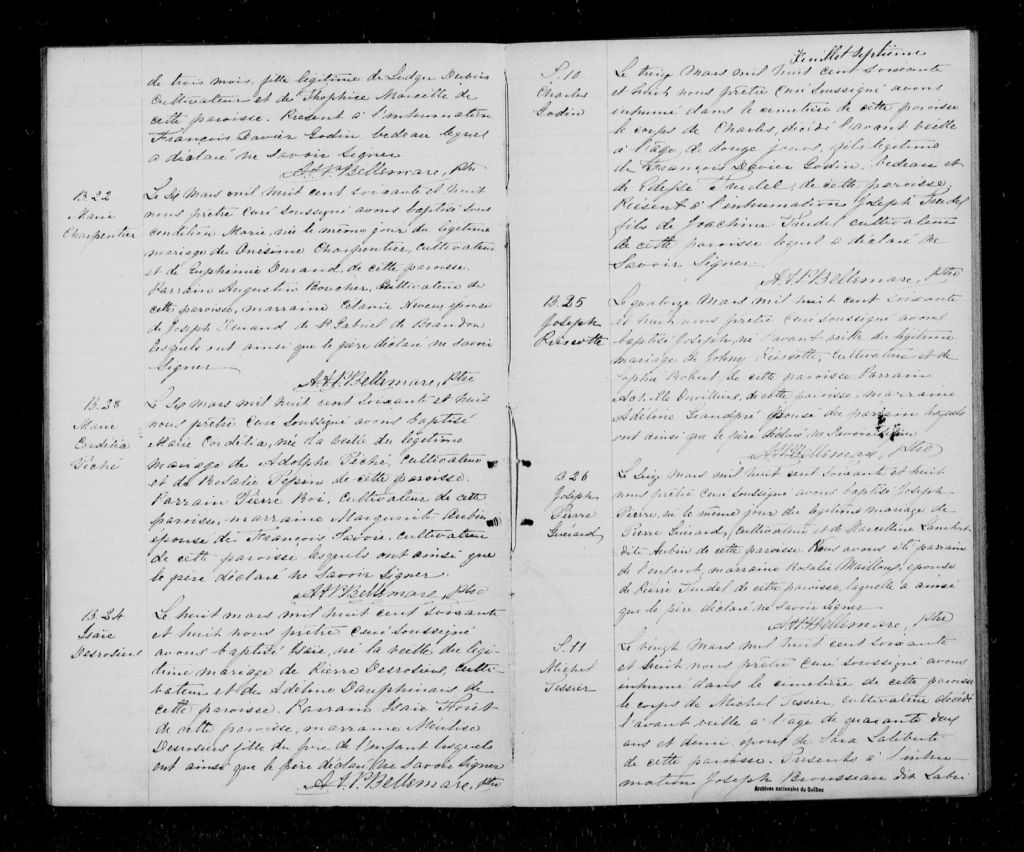 de trois mois, fille légitime de Ludger Dubois
cultivateur et de Théophice Marcelle de
cette paroisse. Présent à l'inhumation
François Xavier Godin, bedeau lequel
a déclaré ne savoir signer
A.H.P. Bellemare, Ptre
B. 22
Marie
Charpentier
Le six mars mil huit cent soixante et huit
nous prêtre curé soussigné avons baptisé sous
condition Marie, née le même jour du légitime
mariage de Onésime Charpentier, cultivateur
et de Euphémie Durand, de cette paroisse.
Parrain Augustin Boucher, cultivateur de
cette paroisse, marraine Neveu, épouse
de Joseph de St Gabriel de Brandon
lesquels ont ainsi que le père déclaré ne savoir
signer
A.H.P. Bellemare, Ptre
B. 23
Marie
Cordélia
Piché
Le six mars mil huit cent soixante et huit
nous prêtre curé soussigné avons baptisé
Marie Cordélia, née la veille du légitime
mariage de Adolphe Piché, cultivateur
et de Rosalie Pepin de cette paroisse.
Parrain Pierre Roi, cultivateur de cette
paroisse, marraine Marguerite Aubin
épouse de François Savoie cultivateur
de cette paroisse lesquels ont ainsi que
le père déclaré ne savoir signer.
A.H.P. Bellemare, Ptre
B. 24
Isaïe
Desrosiers
Le huit mars mil huit cent soixante
et huit nous prêtre curé soussigné
avons baptisé Isaïe, né la veille du légi-
time mariage de Pierre Desrosiers, culti-
vateur et de Adéline Dauphinais de
cette paroisse. Parrain Isaïe
de cette paroisse, marraine
Desrosiers fille du père de l'enfant lesquels
ont ainsi que le père déclaré ne savoir signer
A.H.P. Bellemare, Ptre
Feuillet septième
S. 10
Charles
Godin
Le treize mars mil huit cent soixante
et huit nous prêtre curé soussigné avons
inhumé dans le cimetière de cette paroisse
le corps de Charles, décédé l'avant veille
à l'âge de douze jours, fils légitime
de François Xavier Godin, bedeau et
de Trudel, de cette paroisse.
Présent à l'inhumation Joseph Trudel
fils de Joachim Trudel cultivateur
de cette paroisse lequel a déclaré ne
savoir signer.
A.H.P. Bellemare, Ptre
B. 25
Joseph
Rivscotte
Le quatorze mars mil huit cent soixante
et huit nous prêtre curé soussigné avons
baptisé Joseph, né l'avant veille du légitime
mariage de Johny, cultivateur et de
Sophie Robert de cette paroisse. Parrain
de cette paroisse, marraine
Adéline Grandpré épouse du parrain lesquels
ont ainsi que le père déclaré ne savoir signer
A.H.P. Bellemare, Ptre
B. 26
Joseph
Pierre
Guérard
Le seize mars mil huit cent soixante et huit
nous prêtre curé soussigné avons baptisé Joseph
Pierre, né le même jour du légitime mariage de
Pierre Guérard, cultivateur et de Marcelline Lambert
dite Aubin de cette paroisse. Nous avons été parrain
de l'enfant, marraine Rosalie Mailloux, épouse
de Pierre Trudel de cette paroisse, laquelle a ainsi
que le père déclaré ne savoir signer
A.H.P. Bellemare, Ptre
S. 11
Michel
Tessier
Le vingt mars mil huit cent soixante
et huit nous prêtre curé soussigné avons
inhumé dans le cimetière de cette paroisse
le corps de Michel Tessier, cultivateur décédé
l'avant veille à l'âge de quarante deux
ans et demi, époux de Sara Laliberté
de cette paroisse. Présents à l'inhu-
mation Joseph Brousseau dit Labri
Archives nationales du Québec